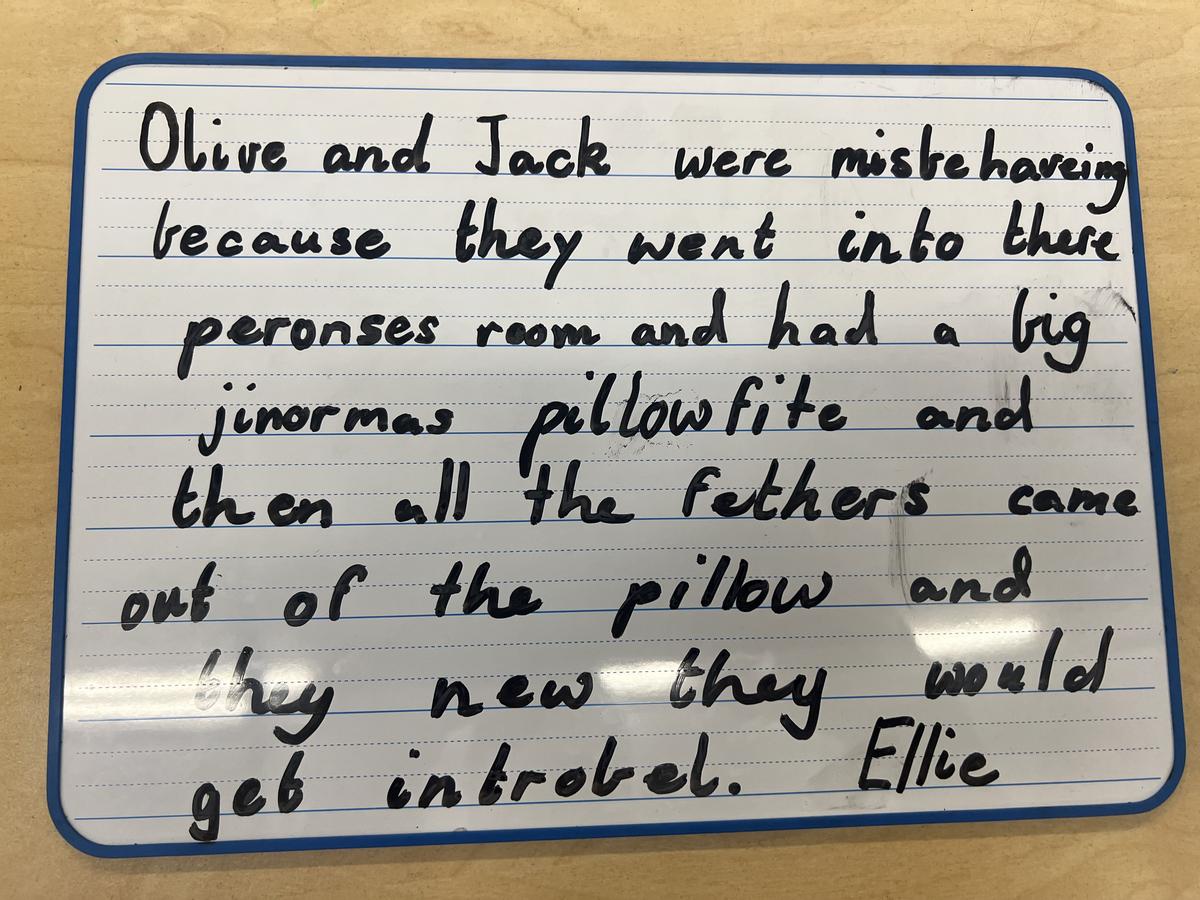 Olive and Jack were misbehaveing
because they went into there
peronses room and had a big
jinormas pillowfite and
then all the fethers came
out of the pillow and
they new they would
get introbel. Ellie